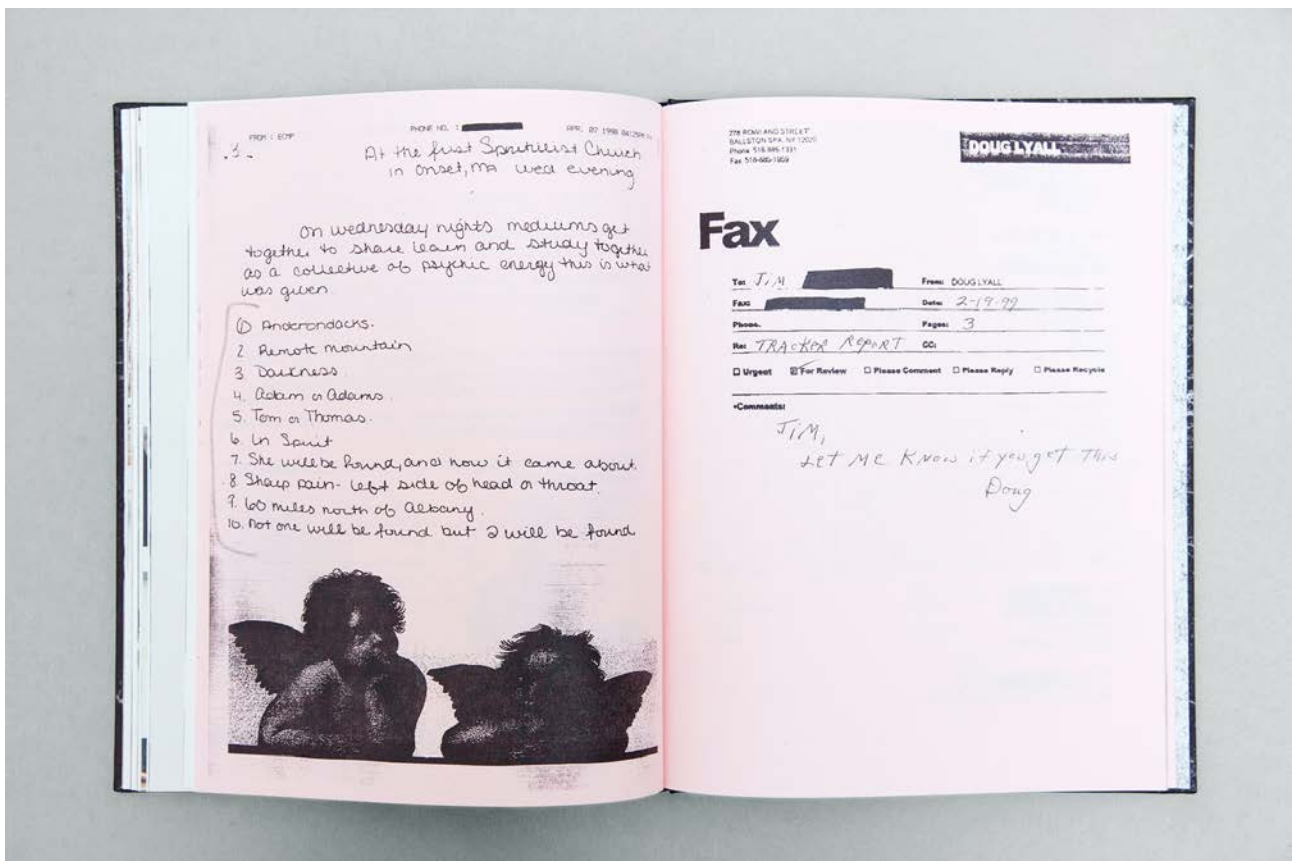 FROM : ECMP
PHONE NO. :
APR. 07 1998 04:25PM
.3.
At the first Spiritilist Church
in Onset, MA wed evening
On wednesday nights mediums get
together to share learn and study together
as a collective of psychic energy this is what
was given.
1 Anderondacks.
2. Remote mountain
3. Darkness.
4. Adam or Adams.
5. Tom or Thomas.
6. In Spirit
7. She will be found, and how it came about.
8. Sharp pain - left side of head or throat.
9. 60 miles north of Albany.
10. Not one will be found but 2 will be found
278 ROWLAND STREET
BALLSTON SPA, NY 12020
Phone 518-885-1331
Fax 518-885-1909
DOUG LYALL
Fax
To: JIM From: DOUG LYALL
Fax: Date: 2-19-99
Phone: Pages: 3
Re: TRACKER REPORT CC:
Urgent For Review Please Comment Please Reply Please Recycle
•Comments:
JIM,
LET ME KNOW if you get This
Doug